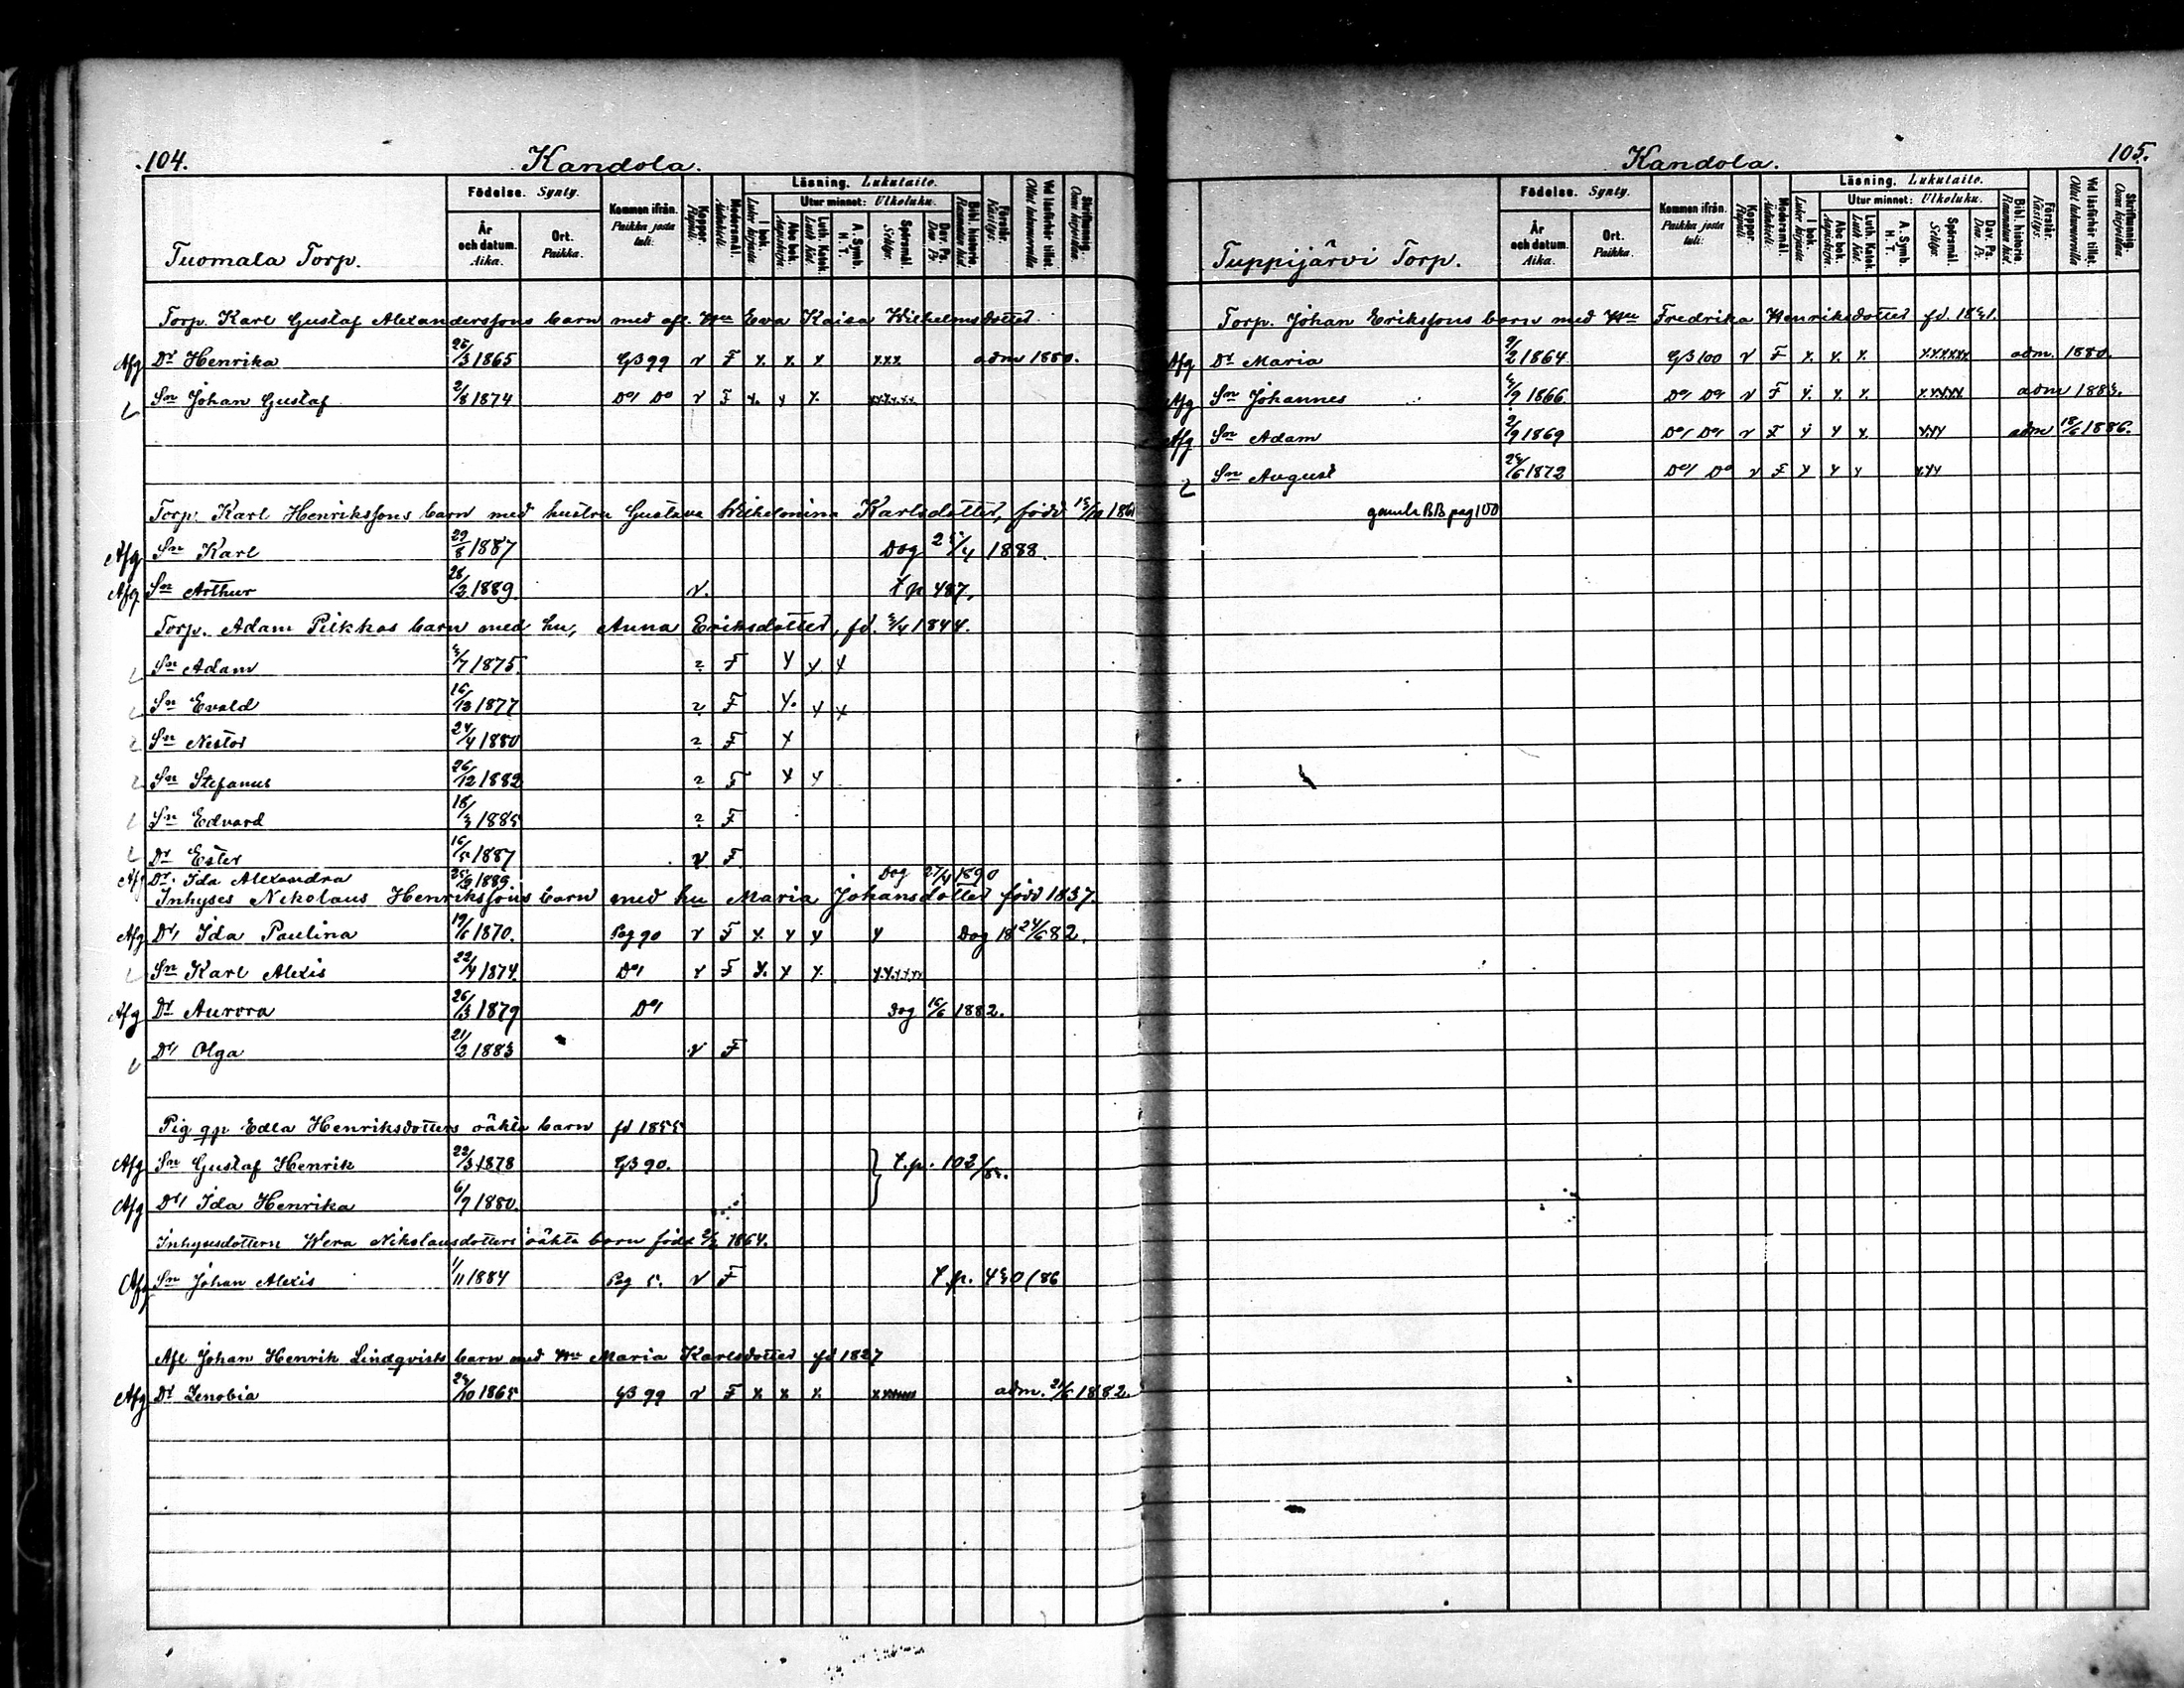 104. Kandola.
Tuomala Torp.
Födelse. Synty.
År och datum. Aika.
Ort. Paikka.
Kommen ifrån. Paikka josta tuli.
Koppor. Rupuli.
Modersmål. Äidinkieli.
Läsning. Lukutaito.
I bok. Lukee kirjasta.
Utur minnet: Ulkoluku.
Abc bok. Aapiskirja.
Luth. Katek. Luth. Kat.
A. Symb. H. T.
Spörsmål. Selitys.
Dav. Ps. Dav. Ps.
Bibl. historia. Raamatun hist.
Förstår. Käsitys.
Vid läsförhör tillst. Ollut lukuvuorolla
Skriftunnig. Osaa kirjoittaa.
Torp. Karl Gustaf Alexanderssons barn med afl. Hu Eva Kaisa Wilhelmsdotter
Afg Dr Henrika 1865 GB 99 v F x. x. x xxx adm 1880.
Sn Johan Gustaf 2/8 1874 Do/ Do v F x. x x. xxxxxx
Torp. Karl Henrikssons barn med hustru Gustava Wilhelmina Karlsdotter, född
Afg Sn Karl 29/8 1887 Dog 1888.
Afg Sn Arthur 28/2 1889. v. p 487.
Torp. Adam Pilkkas barn med hu, Anna Eriksdotter, fd. 1844.
Sn Adam 1875. F x x x
Sn Evald 16/12 1877 F x. x x
Sn Nestor 24/4 1880 F x
Sn Stefanus 26/12 1882 F x x
Sn Edvard 18/3 1885 F
Dr Ester 16/5 1887 v F
Afg Dr. Ida Alexandra 1889. Dog 27/4 1890
Inhyses Nikolaus Henrikssons barn med hu Maria Johansdotter född 1837.
Afg Dr Ida Paulina 1870. Pag 90 v F x x x x Dog 18 24/6 82.
Sn Karl Alexis 22/4 1874. Do/ v F x. x x xxxxxx
Afg Dr Aurora 26/3 1879 Do/ Dog 16/6 1882.
Dr Olga 21/2 1883 v F
Pig gp Edla Henriksdotters oäkta barn fd 1855
Afg Sn Gustaf Henrik 22/3 1878 GB 90. } p. 102/
Afg Dr Ida Henrika 1880.
Inhysesdottern Wera Nikolausdotters oäkta barn född 1864.
Afg Sn Johan Alexis 1/11 1884 Pag 5. v F
Afl Johan Henrik Lindqvists barn med Hu Maria Karlsdotter fd 1827
Afg Dr Zenobia 1865 GB 99 v F x x x. adm. 1882.
Kandola. 105.
Tuppijärvi Torp.
Födelse. Synty.
År och datum. Aika.
Ort. Paikka.
Kommen ifrån. Paikka josta tuli.
Koppor. Rupuli.
Modersmål. Äidinkieli.
Läsning. Lukutaito.
I bok. Lukee kirjasta.
Utur minnet: Ulkoluku.
Abc bok. Aapiskirja.
Luth. Katek. Luth. Kat.
A. Symb. H. T.
Spörsmål. Selitys.
Dav. Ps. Dav. Ps.
Bibl. historia Raamatun hist.
Förstår. Käsitys.
Vid läsförhör tillst. Ollut lukuvuorolla
Skriftunnig. Osaa kirjoittaa.
Torp. Johan Erikssons barn med Hu Fredrika Henriksdotter fd.
Afg Dr Maria 9/2 1864 GB 100 v F x. x. x. xxxxxx adm. 1880.
Afg Sn Johannes 1866 Do/ Do/ v F x. x. x. xxxxx adm
Afg Sn Adam 2/9 1869 Do/ Do/ v F x x x. xxx adm 18/6 1886.
Sn August 1872 Do/ Do v F x x x xxx
gamla BB pag 100